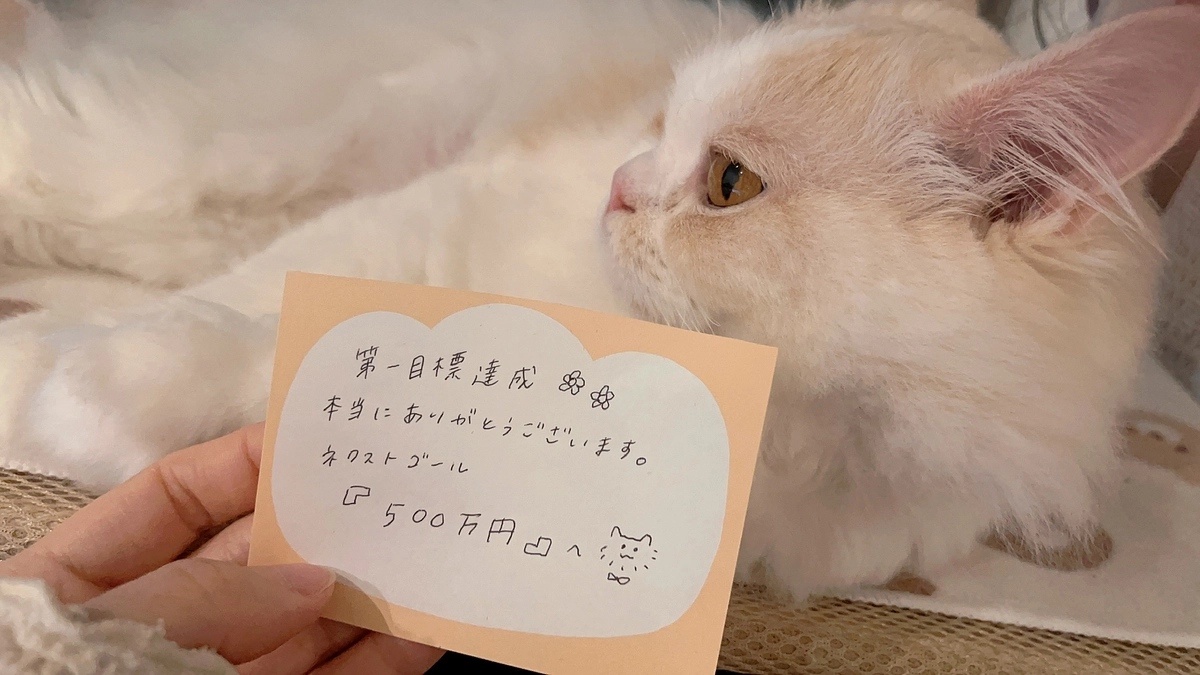 第一目標達成
本当にありがとうございます。
ネクストゴール
『500万円』へ